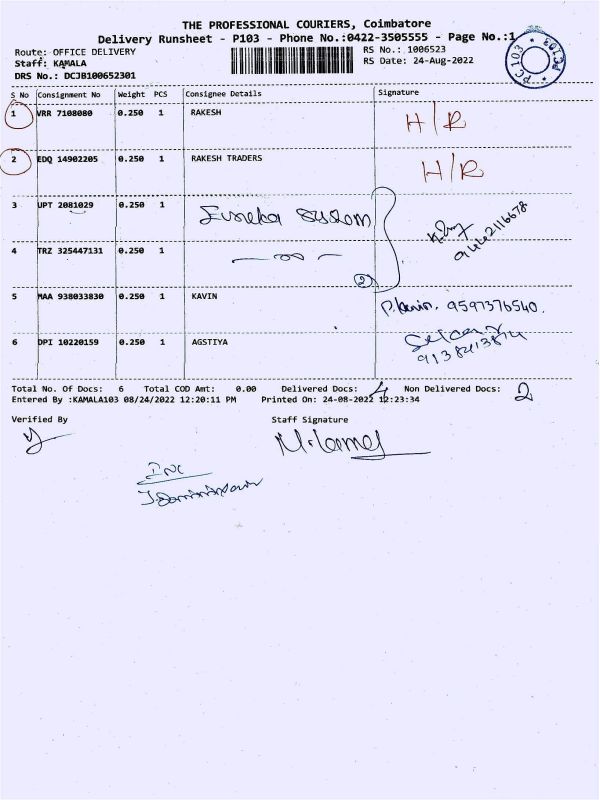 THE PROFESSIONAL COURIERS, Coimbatore
Delivery Runsheet - P103 - Phone No.:0422-3505555 - Page No.:1
Route: OFFICE DELIVERY
RS No.: 1006523
Staff: KAMALA
RS Date: 24-Aug-2022
DRS No.: DCJB100652301
PC103
PC103
S No Consignment No Weight PCS Consignee Details Signature
1 VRR 7108080 0.250 1 RAKESH H/R
2 EDQ 14902205 0.250 1 RAKESH TRADERS H/R
3 UPT 2081029 0.250 1 Eureka System
9442116678
4 TRZ 325447131 0.250 1
2
5 MAA 938033830 0.250 1 KAVIN P. Kavin. 9597376540.
6 DPI 10220159 0.250 1 AGSTIYA
Total No. Of Docs: 6 Total COD Amt: 0.00 Delivered Docs: 4 Non Delivered Docs: 2
Entered By :KAMALA103 08/24/2022 12:20:11 PM Printed On: 24-08-2022 12:23:34
Verified By Staff Signature